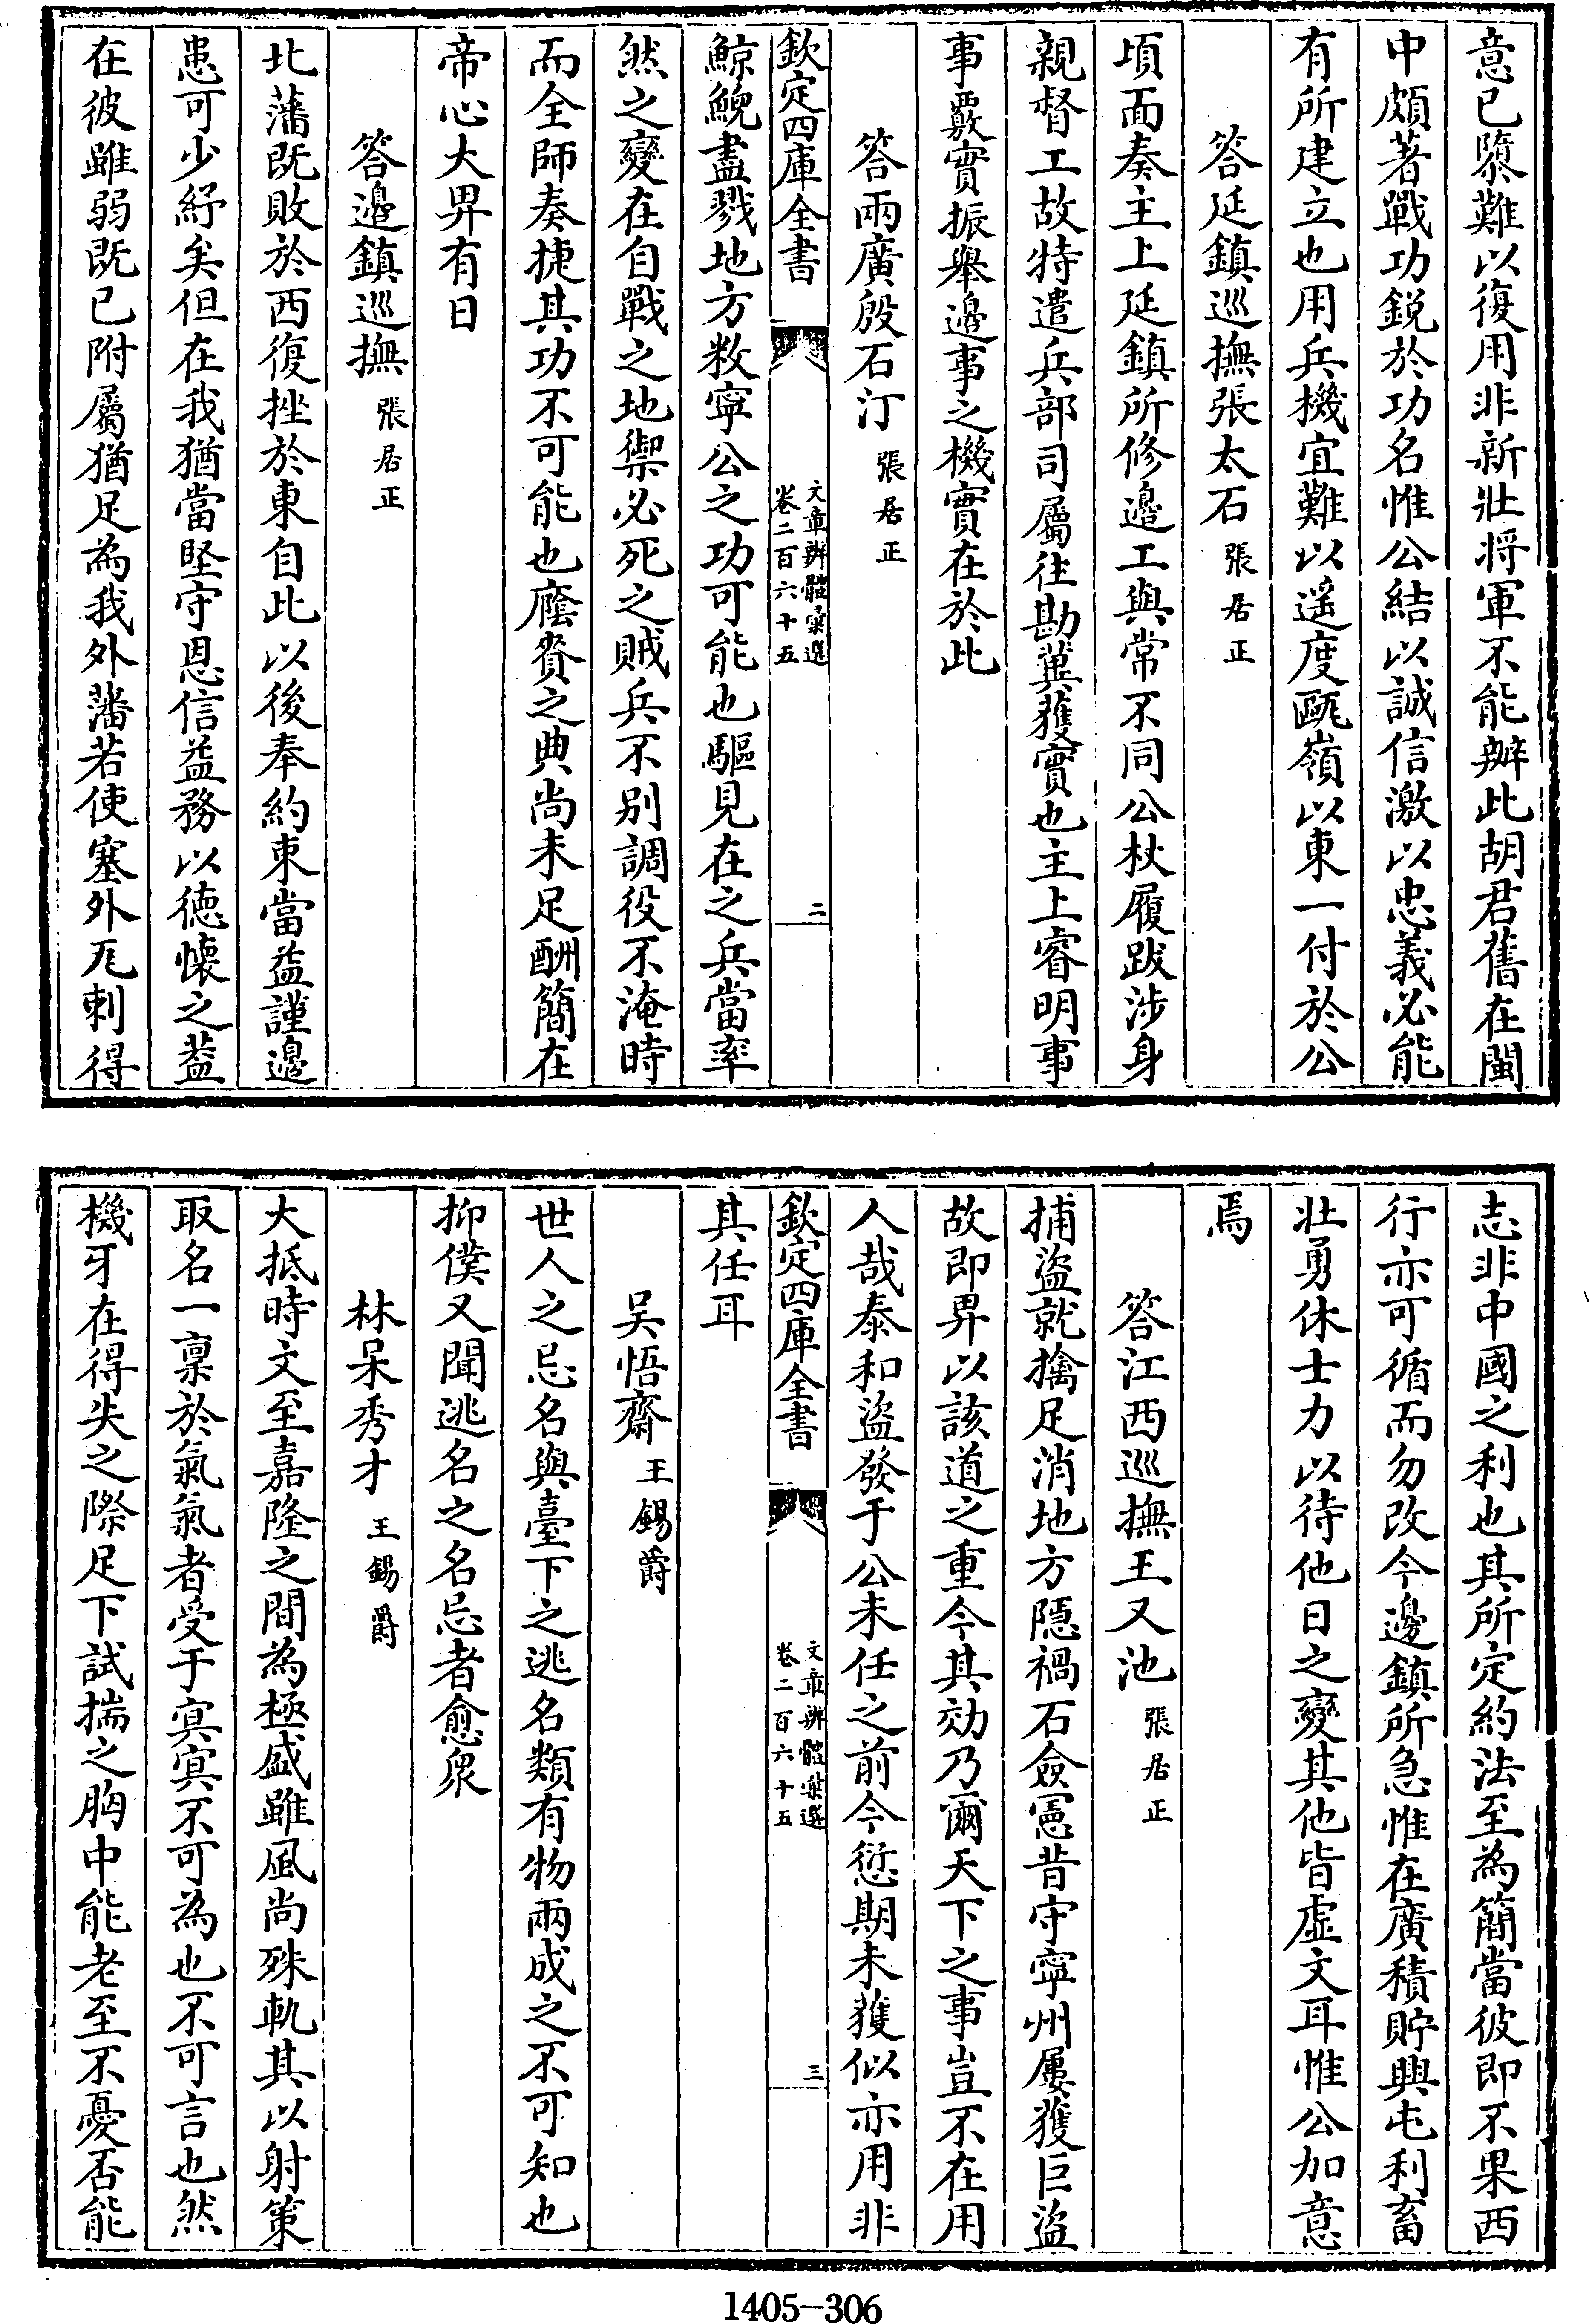 意已隳難以復用非新壯將軍不能辦此胡君舊在閩
中頗著戰功銳於功名惟公結以誠信激以忠義必能
有所建立也用兵機宜難以遥度甌嶺以東一付於公
答延鎮巡撫張太石張居正
頃面奏主上延鎮所修邊工與常不同公杖履跋涉身
親督工故特遣兵部司屬往勘冀獲實也主上睿明事
事覈實振舉邊事之機實在於此
答兩廣殷石汀張居正
欽定四庫全書
文章辨體彙選
卷二百六十五
二
鯨鯢盡戮地方敉寧公之功可能也驅見在之兵當率
然之變在自戰之地禦必死之賊兵不別調役不淹時
而全師奏捷其功不可能也廕賚之典尚未足酬簡在
帝心大畀有日
答邊鎮巡撫張居正
北藩既敗於西復挫於東自此以後奉約束當益謹邊
患可少紓矣但在我猶當堅守恩信益務以徳懷之葢
在彼雖弱既已附屬猶足為我外藩若使塞外兀剌得
志非中國之利也其所定約法至為簡當彼即不果西
行亦可循而勿改今邊鎮所急惟在廣積貯興屯利畜
壯勇休士力以待他日之變其他皆虛文耳惟公加意
焉
答江西巡撫王又池張居正
捕盜就擒足消地方隱禍石僉憲昔守寧州屢獲巨盜
故即畀以該道之重今其効乃爾天下之事豈不在用
人哉泰和盜發于公未任之前今愆期未獲似亦用非
欽定四庫全書
文章辨體彙選
卷二百六十五
三
其任耳
吴悟齋王錫爵
世人之忌名與臺下之逃名類有物兩成之不可知也
抑僕又聞逃名之名忌者愈衆
林呆秀才王錫爵
大抵時文至嘉隆之間為極盛雖風尚殊軌其以射策
取名一稟於氣氣者受于冥冥不可為也不可言也然
機牙在得失之際足下試揣之胸中能老至不憂否能
1405-306